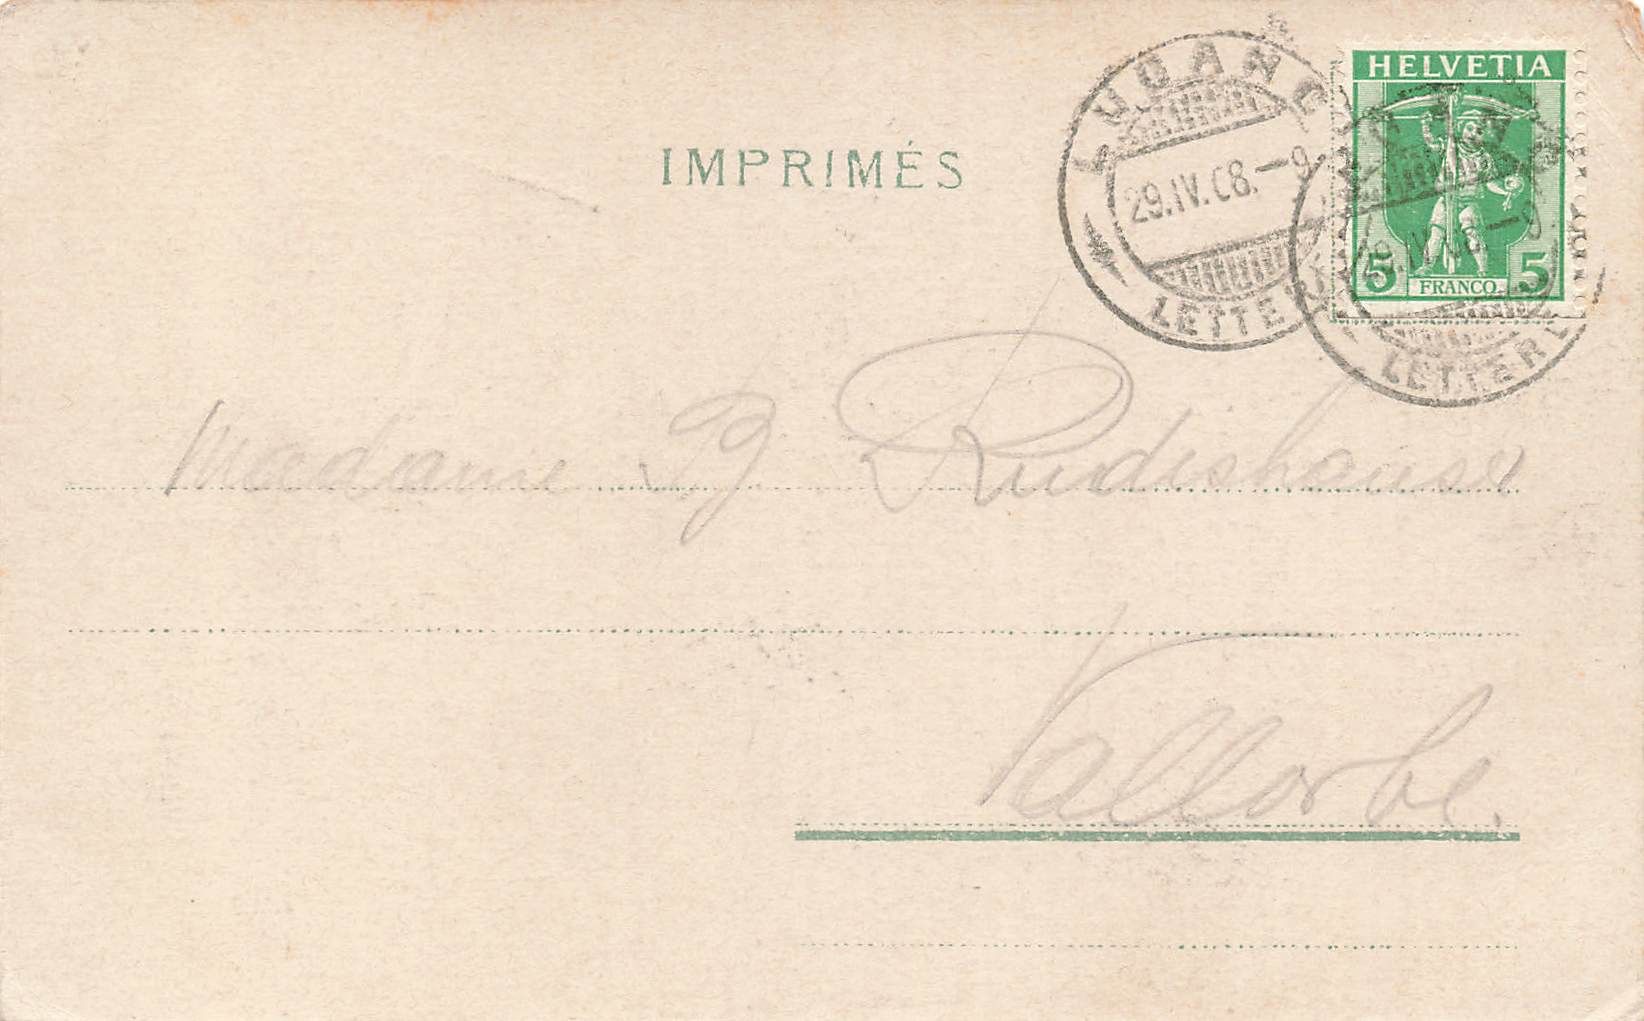 HELVETIA
5 FRANCO 5
LUGANO
29.IV.08.-9
LETTERE
LETTERE
IMPRIMÉS
Madame B. Rudishauser
Vallorbe.